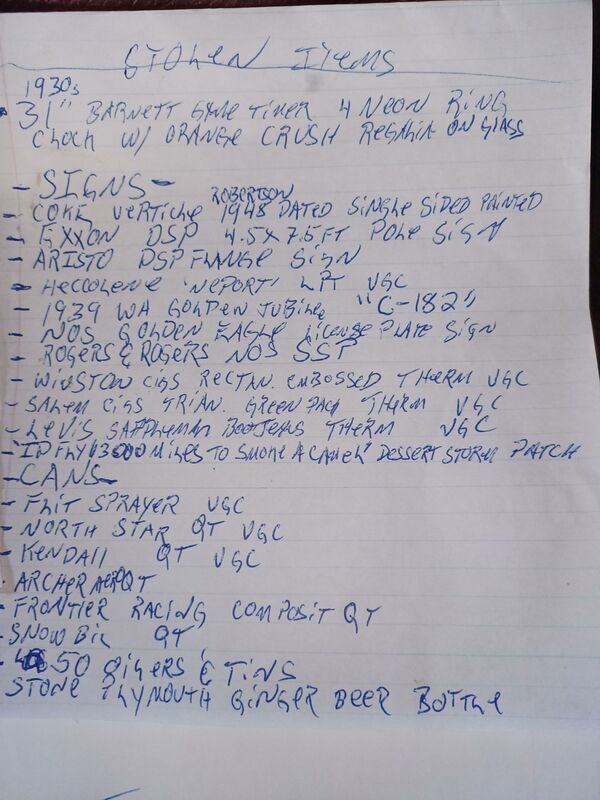 STOLEN ITEMS
1930s
31" BARNETT GYRE TIMER 4 NEON RING
CLOCK W/ ORANGE CRUSH REGALIA ON GLASS
- SIGNS -
ROBERTSON
- COKE VERTICLE 1948 DATED SINGLE SIDED PAINTED
- EXXON DSP 4.5X7.5FT POLE SIGN
- ARISTO DSP FLANGE SIGN
- "NEPORT" LPI VGC
- 1939 WA GOLDEN JUBILEE "C-182"
- NOS GOLDEN EAGLE LICENSE PLATE SIGN
- ROGERS & ROGERS NOS SSP
- WINSTON CIGS RECTAN. EMBOSSED THERM VGC
- SALEM CIGS TRIAN. GREEN PACK THERM VGC
- LEVIS BOOTJEANS THERM VGC
- I'D FLY 13000 MILES TO SMOKE A CAMEL" DESSERT STORM PATCH
- CANS -
- FLIT SPRAYER VGC
- NORTH STAR QT VGC
- KENDALL QT VGC
- ARCHER AERO QT
- FRONTIER RACING COMPOSIT QT
- SNOW BIL QT
- 50 OILERS & TINS
STONE PLYMOUTH GINGER BEER BOTTLE